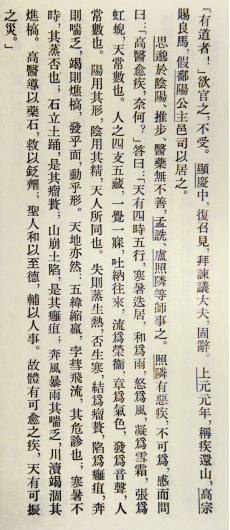 「有道者！」欲官之，不受。顯慶中，復召見，拜諫議大夫，固辭。上元元年，稱疾還山，高宗
賜良馬，假鄱陽公主邑司以居之。
思邈於陰陽、推步、醫藥無不善，孟詵、盧照隣等師事之。照隣有惡疾，不可爲，感而問
曰：「高醫愈疾，奈何？」答曰：「天有四時五行，寒暑迭居，和爲雨，怒爲風，凝爲雪霜，張爲
虹蜺，天常數也。人之四支五藏，一覺一寐，吐納往來，流爲榮衞，章爲氣色，發爲音聲，人
常數也。陽用其形，陰用其精，天人所同也。失則蒸生熱，否生寒，結爲瘤贅，陷爲癰疽，奔
則喘乏，竭則燋槁，發乎面，動乎形。天地亦然：五緯縮贏，孛彗飛流，其危診也；寒暑不
時，其蒸否也；石立土踊，是其瘤贅；山崩土陷，是其癰疽；奔風暴雨其喘乏，川瀆竭涸其
燋槁。高醫導以藥石，救以砭劑；聖人和以至德，輔以人事。故體有可愈之疾，天有可振
之災。」